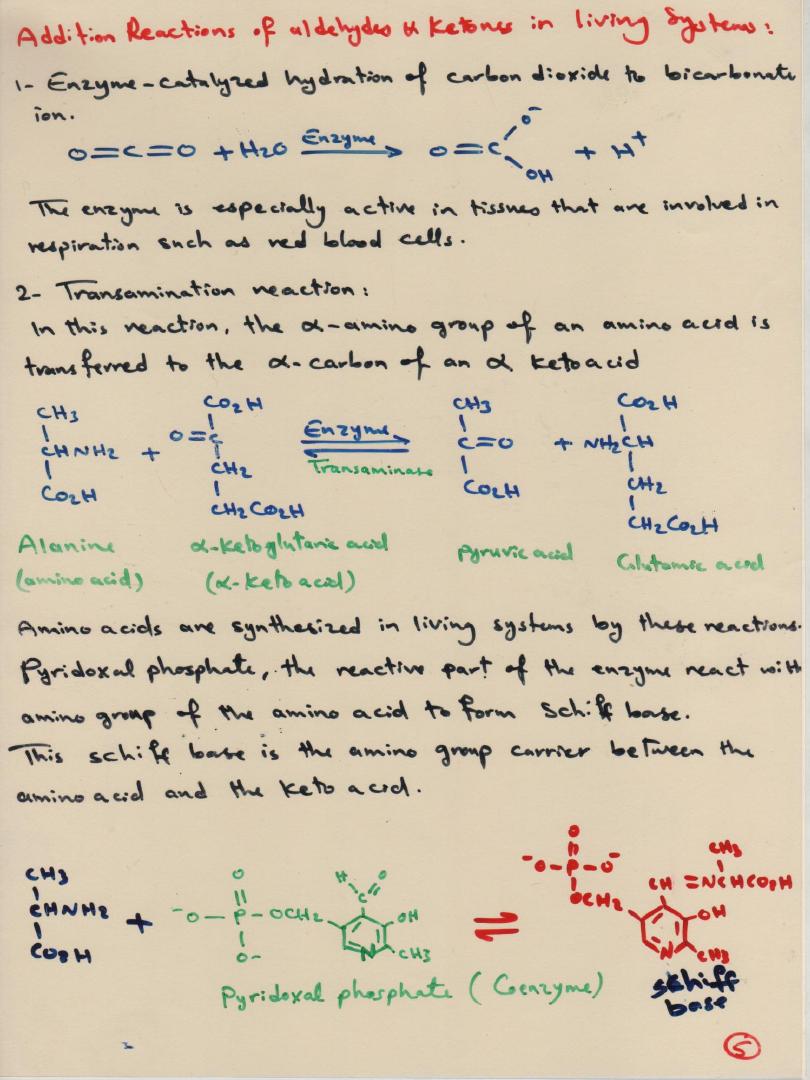 Addition Reactions of aldehydes & Ketones in living Systems:
1- Enzyme-catalyzed hydration of carbon dioxide to bicarbonate
ion.
O=C=O + H2O Enzyme O=C O- OH + H+
The enzyme is especially active in tissues that are involved in
respiration such as red blood cells.
2- Transamination reaction:
In this reaction, the α-amino group of an amino acid is
transferred to the α-carbon of an α ketoacid
CH3 CO2H CH3 CO2H
CHNH2 + O=C Enzyme C=O + NH2CH
CO2H CH2 Transaminase CO2H CH2
CH2CO2H CH2CO2H
Alanine α-Ketoglutaric acid pyruvic acid Glutamic acid
(amino acid) (α-Keto acid)
Amino acids are synthesized in living systems by these reactions.
Pyridoxal phosphate, the reactive part of the enzyme react with
amino group of the amino acid to form Schiff base.
This schiff base is the amino group carrier between the
amino acid and the Keto acid.
O CH3
-O-P-O-
CH3 O H O OCH2 CH =NCHCO2H
CHNH2 + -O-P-OCH2 C OH OH
CO2H O- N CH3 N CH3
Pyridoxal phosphate (Coenzyme) schiff
base
5